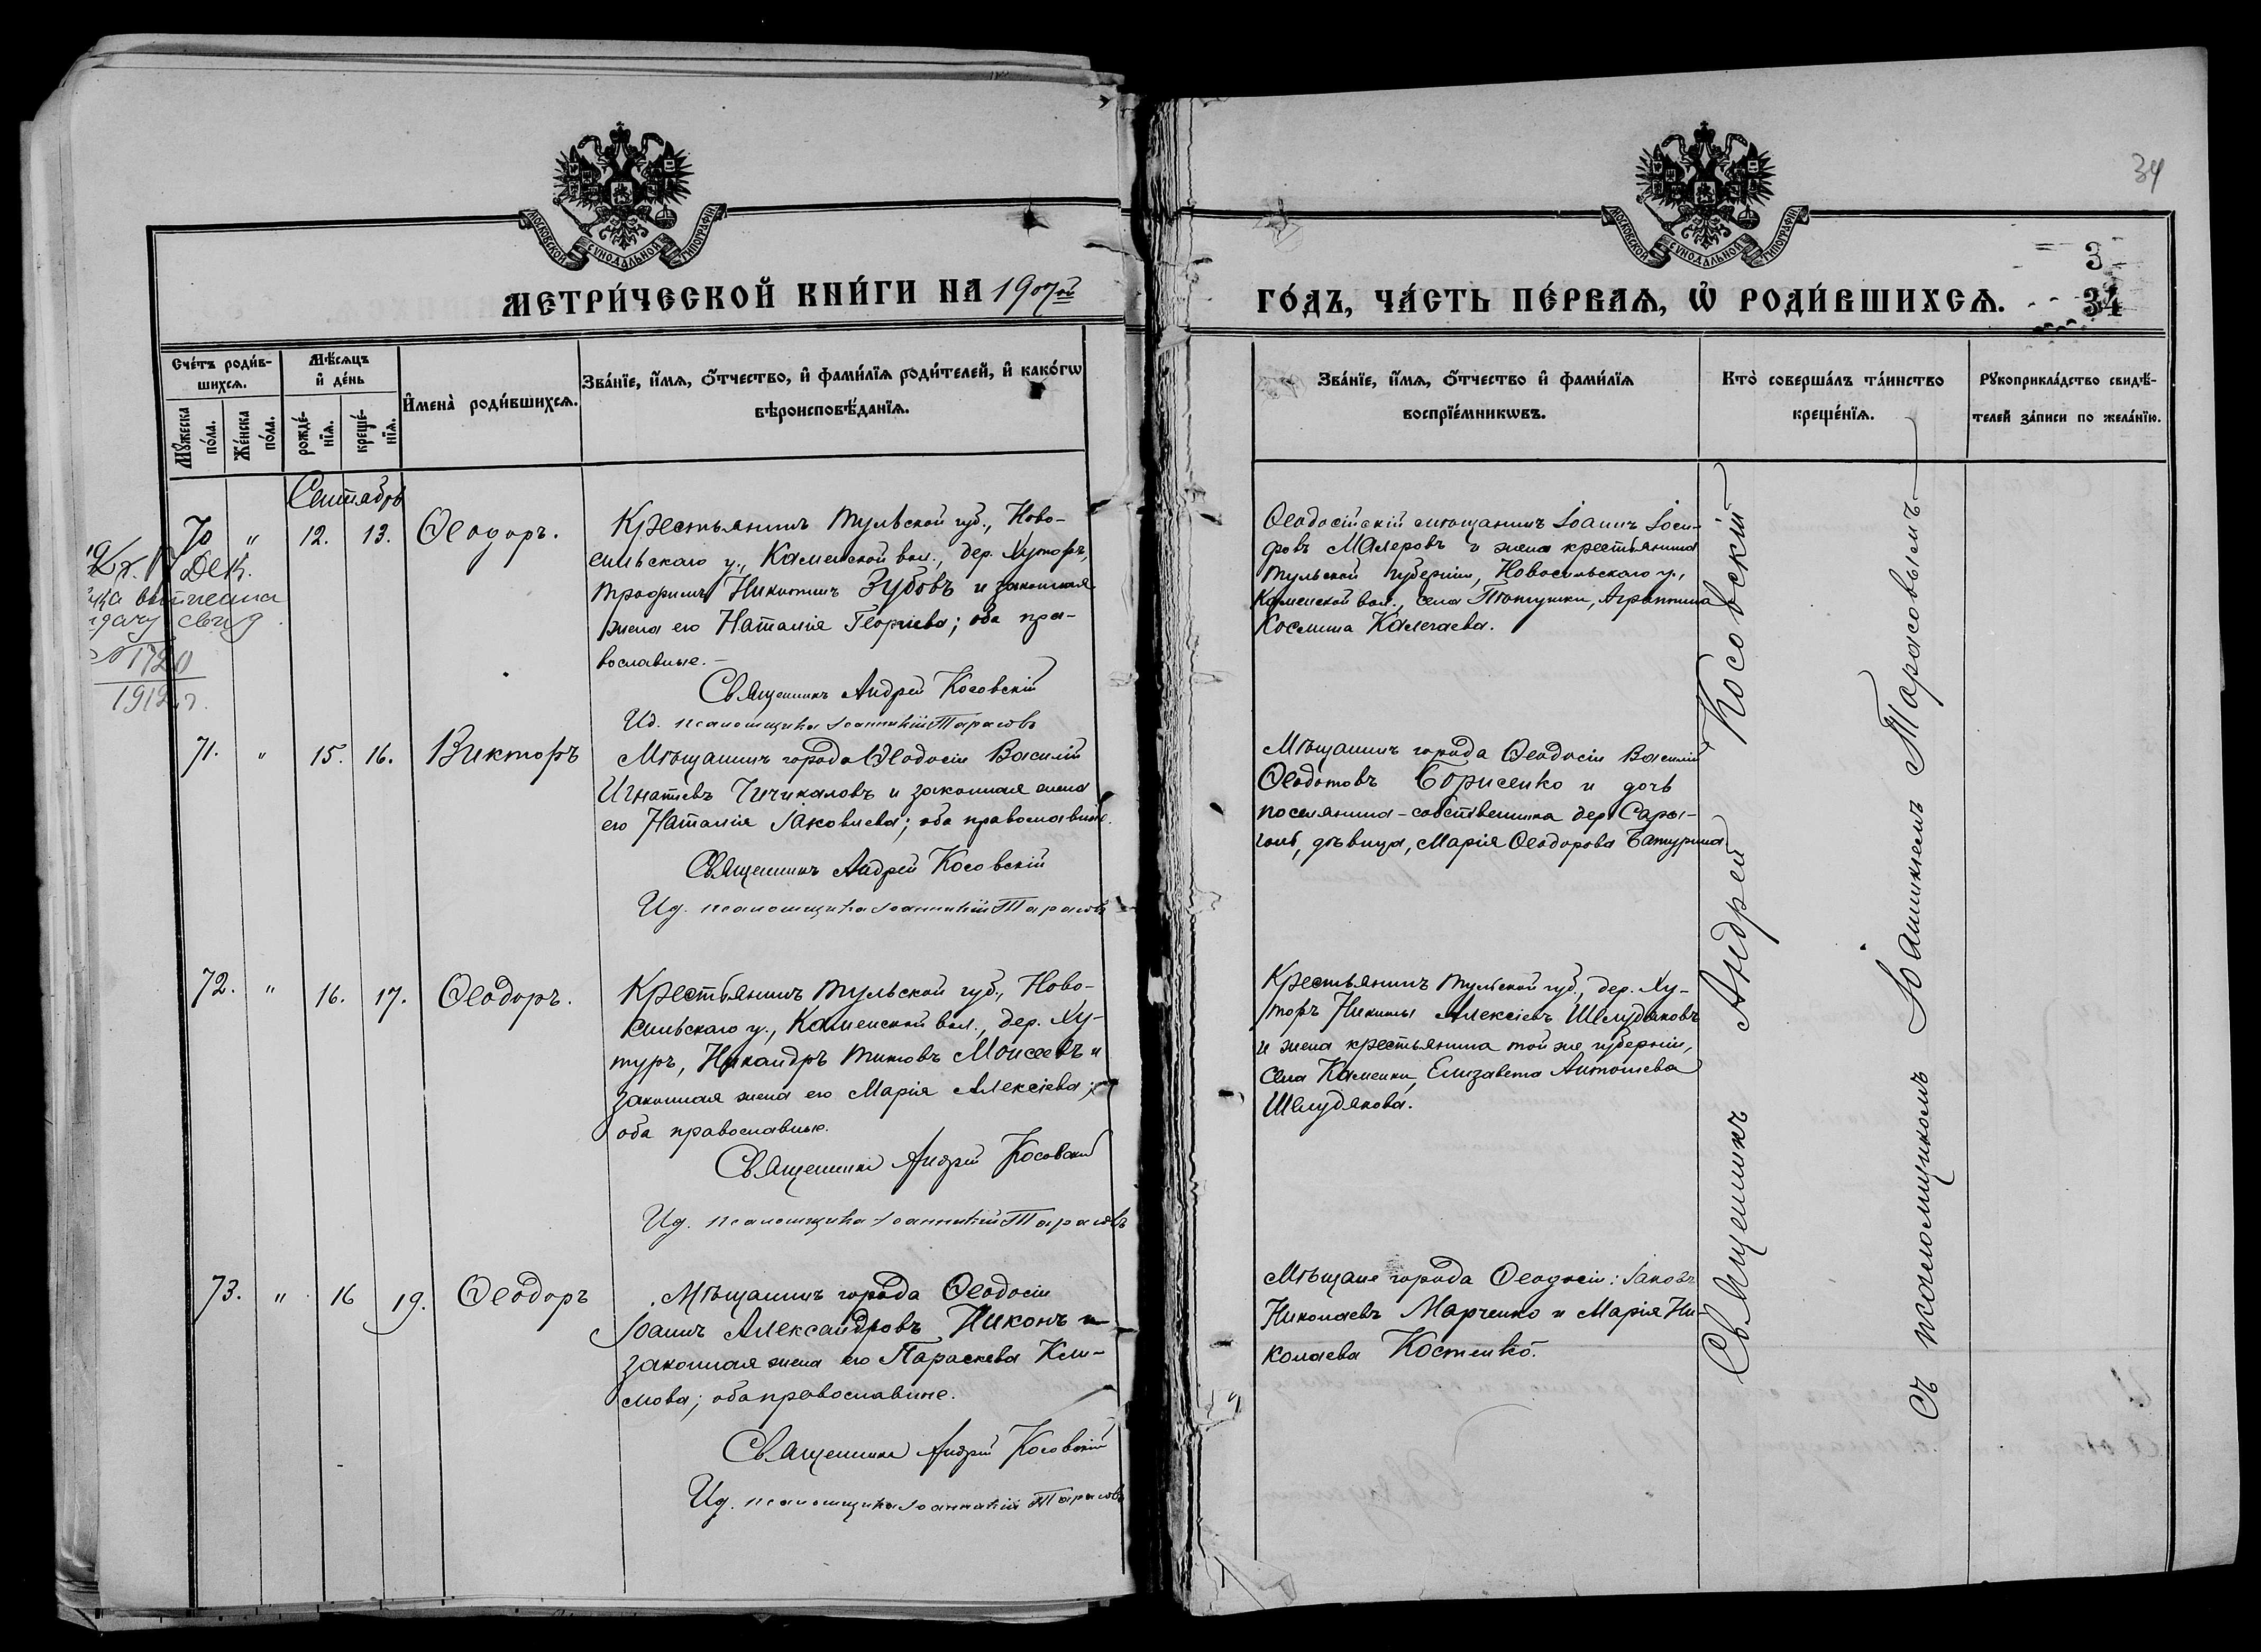 34
МОСКОВСКОЙ СУНОДАЛЬНОЙ ТИПОГРАФІИ
МОСКОВСКОЙ СУНОДАЛЬНОЙ ТИПОГРАФІИ
МЕТРИ́ЧЕСКОЙ КНИ́ГИ НА 1907ой
ГО́ДЪ, ЧА́СТЬ ПЕ́РВАЯ, Ѡ РОДИ́ВШИХСЯ.
3
34
Сче́тъ роди́в-
шихся.
Му́жеска по́ла.
Же́нска по́ла.
Мѣ́сяцъ
и де́нь
рожде́-
нїя.
креще́-
нїя.
Имена̀ роди́вшихся.
Зва́нїе, и́мя, о́тчество, и фами́лїя роди́телей, и како́гѡ
вѣроисповѣ́данїя.
Зва́нїе, и́мя, о́тчество и фами́лїя
воспрїе́мникѡвъ.
Кто̀ соверша́лъ та́инство
креще́нїя.
Рукоприкла́дство свидѣ́-
телей за́писи по жела́нїю.
Сентябрь
70 " 12. 13. Ѳеодоръ.
Крестьянинъ Тульской губ., Ново-
сильскаго у., Каменской вол., дер. Хуторъ,
Трофимъ Никитинъ Зубовъ и законная
жена его Наталія Георгіева; оба пра-
вославные.
Священникъ Андрей Косовскій
Ид. псаломщика Іоанникій Тарасовъ
Дек.
выписка
свид.
№ 1720
1912 г.
Ѳеодосійскій мѣщанинъ Іоаннъ Іоси-
фовъ Маляровъ и жена крестьянина
Тульской губерніи, Новосильскаго у.,
Каменской вол., села Агриппина
Космина
71. " 15. 16. Викторъ
Мѣщанинъ города Ѳеодосіи Василій
Игнатіевъ Чичикаловъ и законная жена
его Наталія Іаковлева; оба православные.
Священникъ Андрей Косовскій
Ид. псаломщика Іоанникій Тарасовъ
Мѣщанинъ города Ѳеодосіи Василій
Ѳеодотовъ Борисенко и дочь
поселянина-собственника дер. Сары-
голь, дѣвица, Марія Ѳеодорова Батурина
72. " 16. 17. Ѳеодоръ.
Крестьянинъ Тульской губ., Ново-
сильскаго у., Каменской вол., дер. Ху-
туръ, Никандръ Титовъ Моисеевъ и
законная жена его Марія Алексіева;
оба православные.
Священникъ Андрей Косовскій
Ид. псаломщика Іоанникій Тарасовъ
Крестьянинъ Тульской губ., дер. Ху-
торъ Никита Алексіевъ Шелудяковъ
и жена крестьянина той же губерніи,
села Каменки, Елизавета Антонова
Шелудякова.
73. " 16 19. Ѳеодоръ
Мѣщанинъ города Ѳеодосіи
Іоаннъ Александровъ Никонъ и
законная жена его Параскева Кли-
мова; оба православные.
Священникъ Андрей Косовскій
Ид. псаломщика Іоанникій Тарасовъ
Мѣщане города Ѳеодосіи: Іаковъ
Николаевъ Марченко и Марія Ни-
колаева Костенко.
Священникъ Андрей Косовскій
Съ псаломщикомъ Іоанникіемъ Тарасовымъ